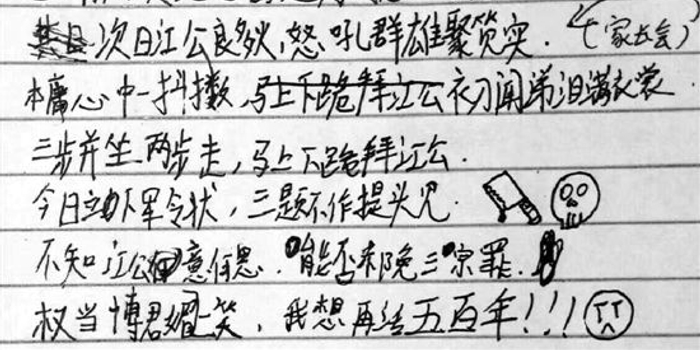 次日江公良多，怒吼群雄聚。（家长会）
本庸心中一抖擞，马上下跪拜江公初闻涕泪满衣裳.
三步并坐两步走，马上下跪拜江公.
今日立下军令状，三题不作提头见.
不知江公意思.能否求免三宗罪.
权当博君一笑，我想再活五百年!!!